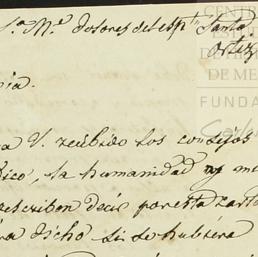 S.ra M.a Dolores del Esp.tu Santo
Ortiz
ia.
a V. recibido los consejos
ico, la humanidad y me
escriben decir por esta carta
ra dicho si se hubiera
CENTR
ESTU
DE HI
DE ME
FUNDA